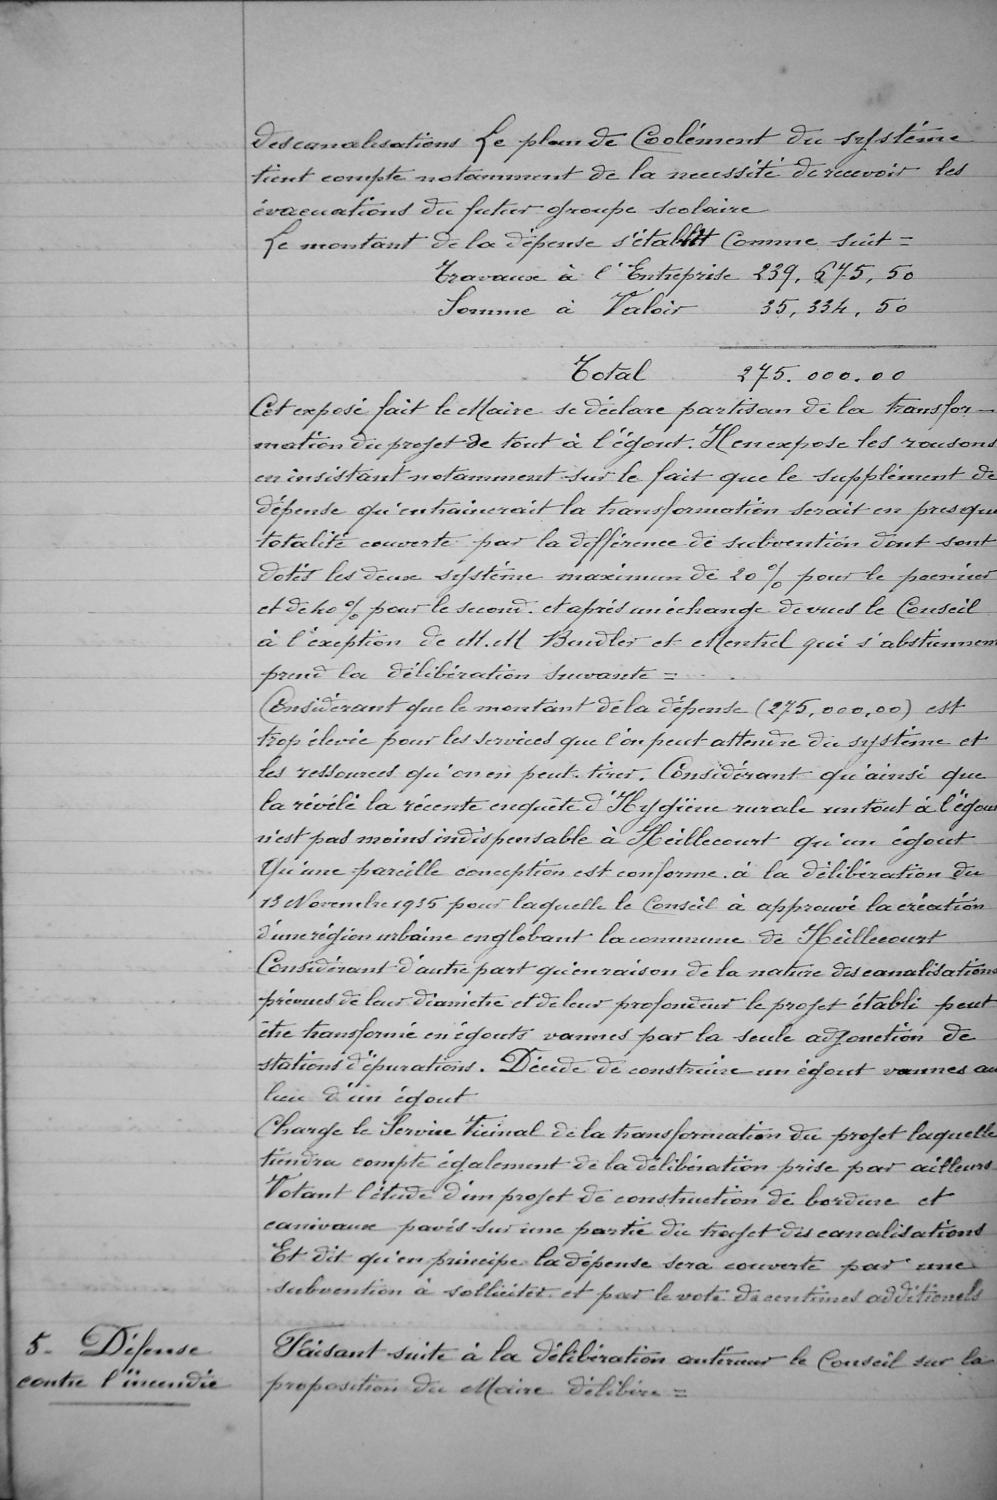 des canalisations Le plan de Colément du système
tient compte notamment de la necessité de recevoir les
évacuations du futur groupe scolaire
Le montant de la dépense s'établit Comme suit =
Travaux à l'Entreprise 239,675,50
Somme à Valoir 35,334,50
Total 275.000.00
Cet exposé fait le Maire se déclare partisan de la transfor-
mation du projet de tout à l'égout. Il en expose les raisons
en insistant notamment sur le fait que le supplément de
dépense qu'entrainerait la transformation serait en presque
totalité couverte par la différence de subvention dont sont
dotés les deux système maximun de 20 % pour le premier
et de 40 % pour le second. et après un échange de vues le Conseil
à l'exeption de M.M et Mentrel qui s'abstiennent
prend la délibération suivante =
Considérant que le montant de la dépense (275,000,00) est
trop élevée pour les services que l'on peut attendre du système et
les ressources qu'on en peut tirer. Considérant qu'ainsi que
la révélé la récente enquête d'Hygiène rurale un tout à l'égout
n'est pas moins indispensable à Heillecourt qu'un égout
Qu'une pareille conception est conforme à la délibération du
13 Novembre 1935 pour laquelle le Conseil à approuvé la création
d'une région urbaine englobant la commune de Heillecourt
Considérant d'autre part qu'en raison de la nature des canalisations
prévues de leur diamètre et de leur profondeur le projet établi peut
être transformé en égouts vannes par la seule adjonction de
stations d'épurations. Décide de construire un égout vannes au
lieu d'un égout
Charge le Service Vicinal de la transformation du projet laquelle
tiendra compte également de la délibération prise par ailleurs
Votant l'étude d'un projet de construction de bordure et
caniveaux pavés sur une partie du trajet des canalisations
Et dit qu'en principe la dépense sera couverte par une
subvention à solliciter et par le vote de centimes additionels
5- Défense
contre l'incendie
Faisant suite à la délibération antérieur le Conseil sur la
proposition du Maire délibère =